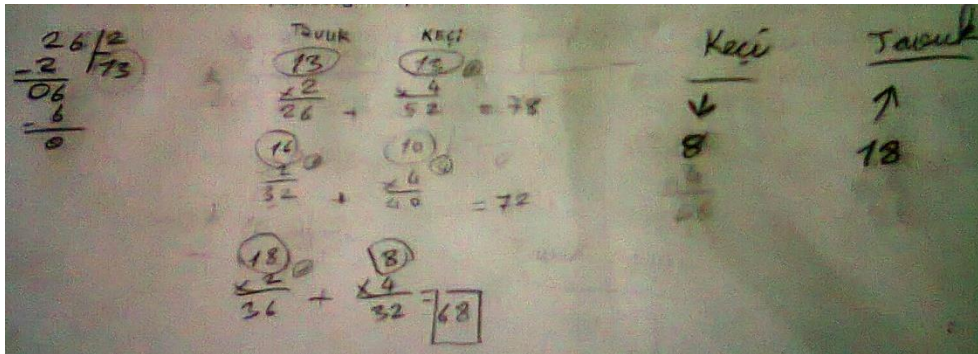 26 2
-2 13
06
- 6
0
Tavuk Keçi
13 13
x2 x4
26 + 52 = 78
16 10
2 x4
32 + 40 = 72
18 8
x2 x4
36 + 32 = 68
Keçi Tavuk
↓ ↑
8 18